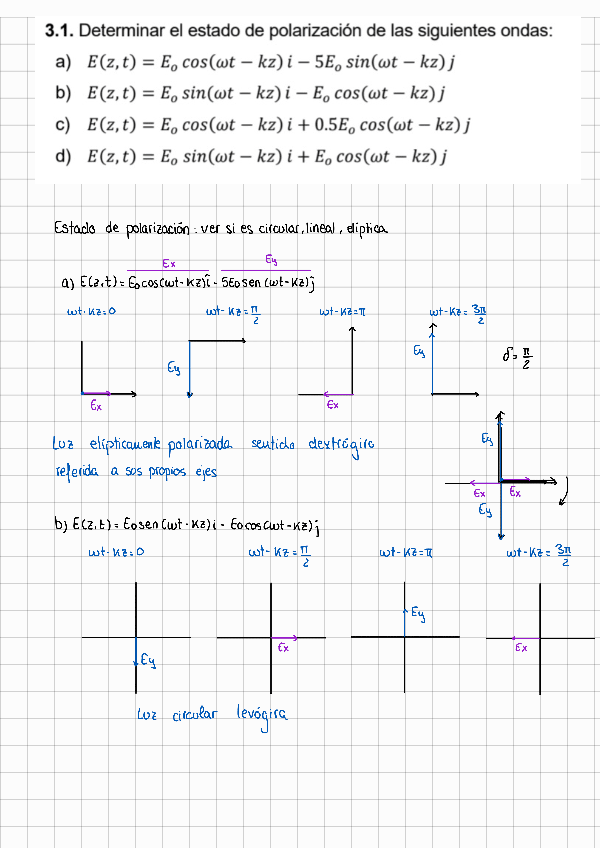 3.1. Determinar el estado de polarización de las siguientes ondas:
a) E(z, t) = E₀ cos(ωt − kz) i − 5E₀ sin(ωt − kz) j
b) E(z, t) = E₀ sin(ωt − kz) i − E₀ cos(ωt − kz) j
c) E(z, t) = E₀ cos(ωt − kz) i + 0.5E₀ cos(ωt − kz) j
d) E(z, t) = E₀ sin(ωt − kz) i + E₀ cos(ωt − kz) j
Estado de polarización: ver si es circular, lineal, elíptica
Ex Ey
a) E(z,t) = E₀cos(ωt-kz)i - 5E₀sen(ωt-kz)j
ωt-kz=0 ωt-kz=π/2 ωt-kz=π ωt-kz=3π/2
Ey Ey δ=π/2
Ex Ex
Luz elípticamente polarizada sentido dextrógiro
referida a sos propios ejes
Ey
Ex Ex
Ey
b) E(z,t) = E₀sen(ωt-kz)i - E₀cos(ωt-kz)j
ωt-kz=0 ωt-kz=π/2 ωt-kz=π ωt-kz=3π/2
Ey
Ex Ex
Ey
Luz circular levógira